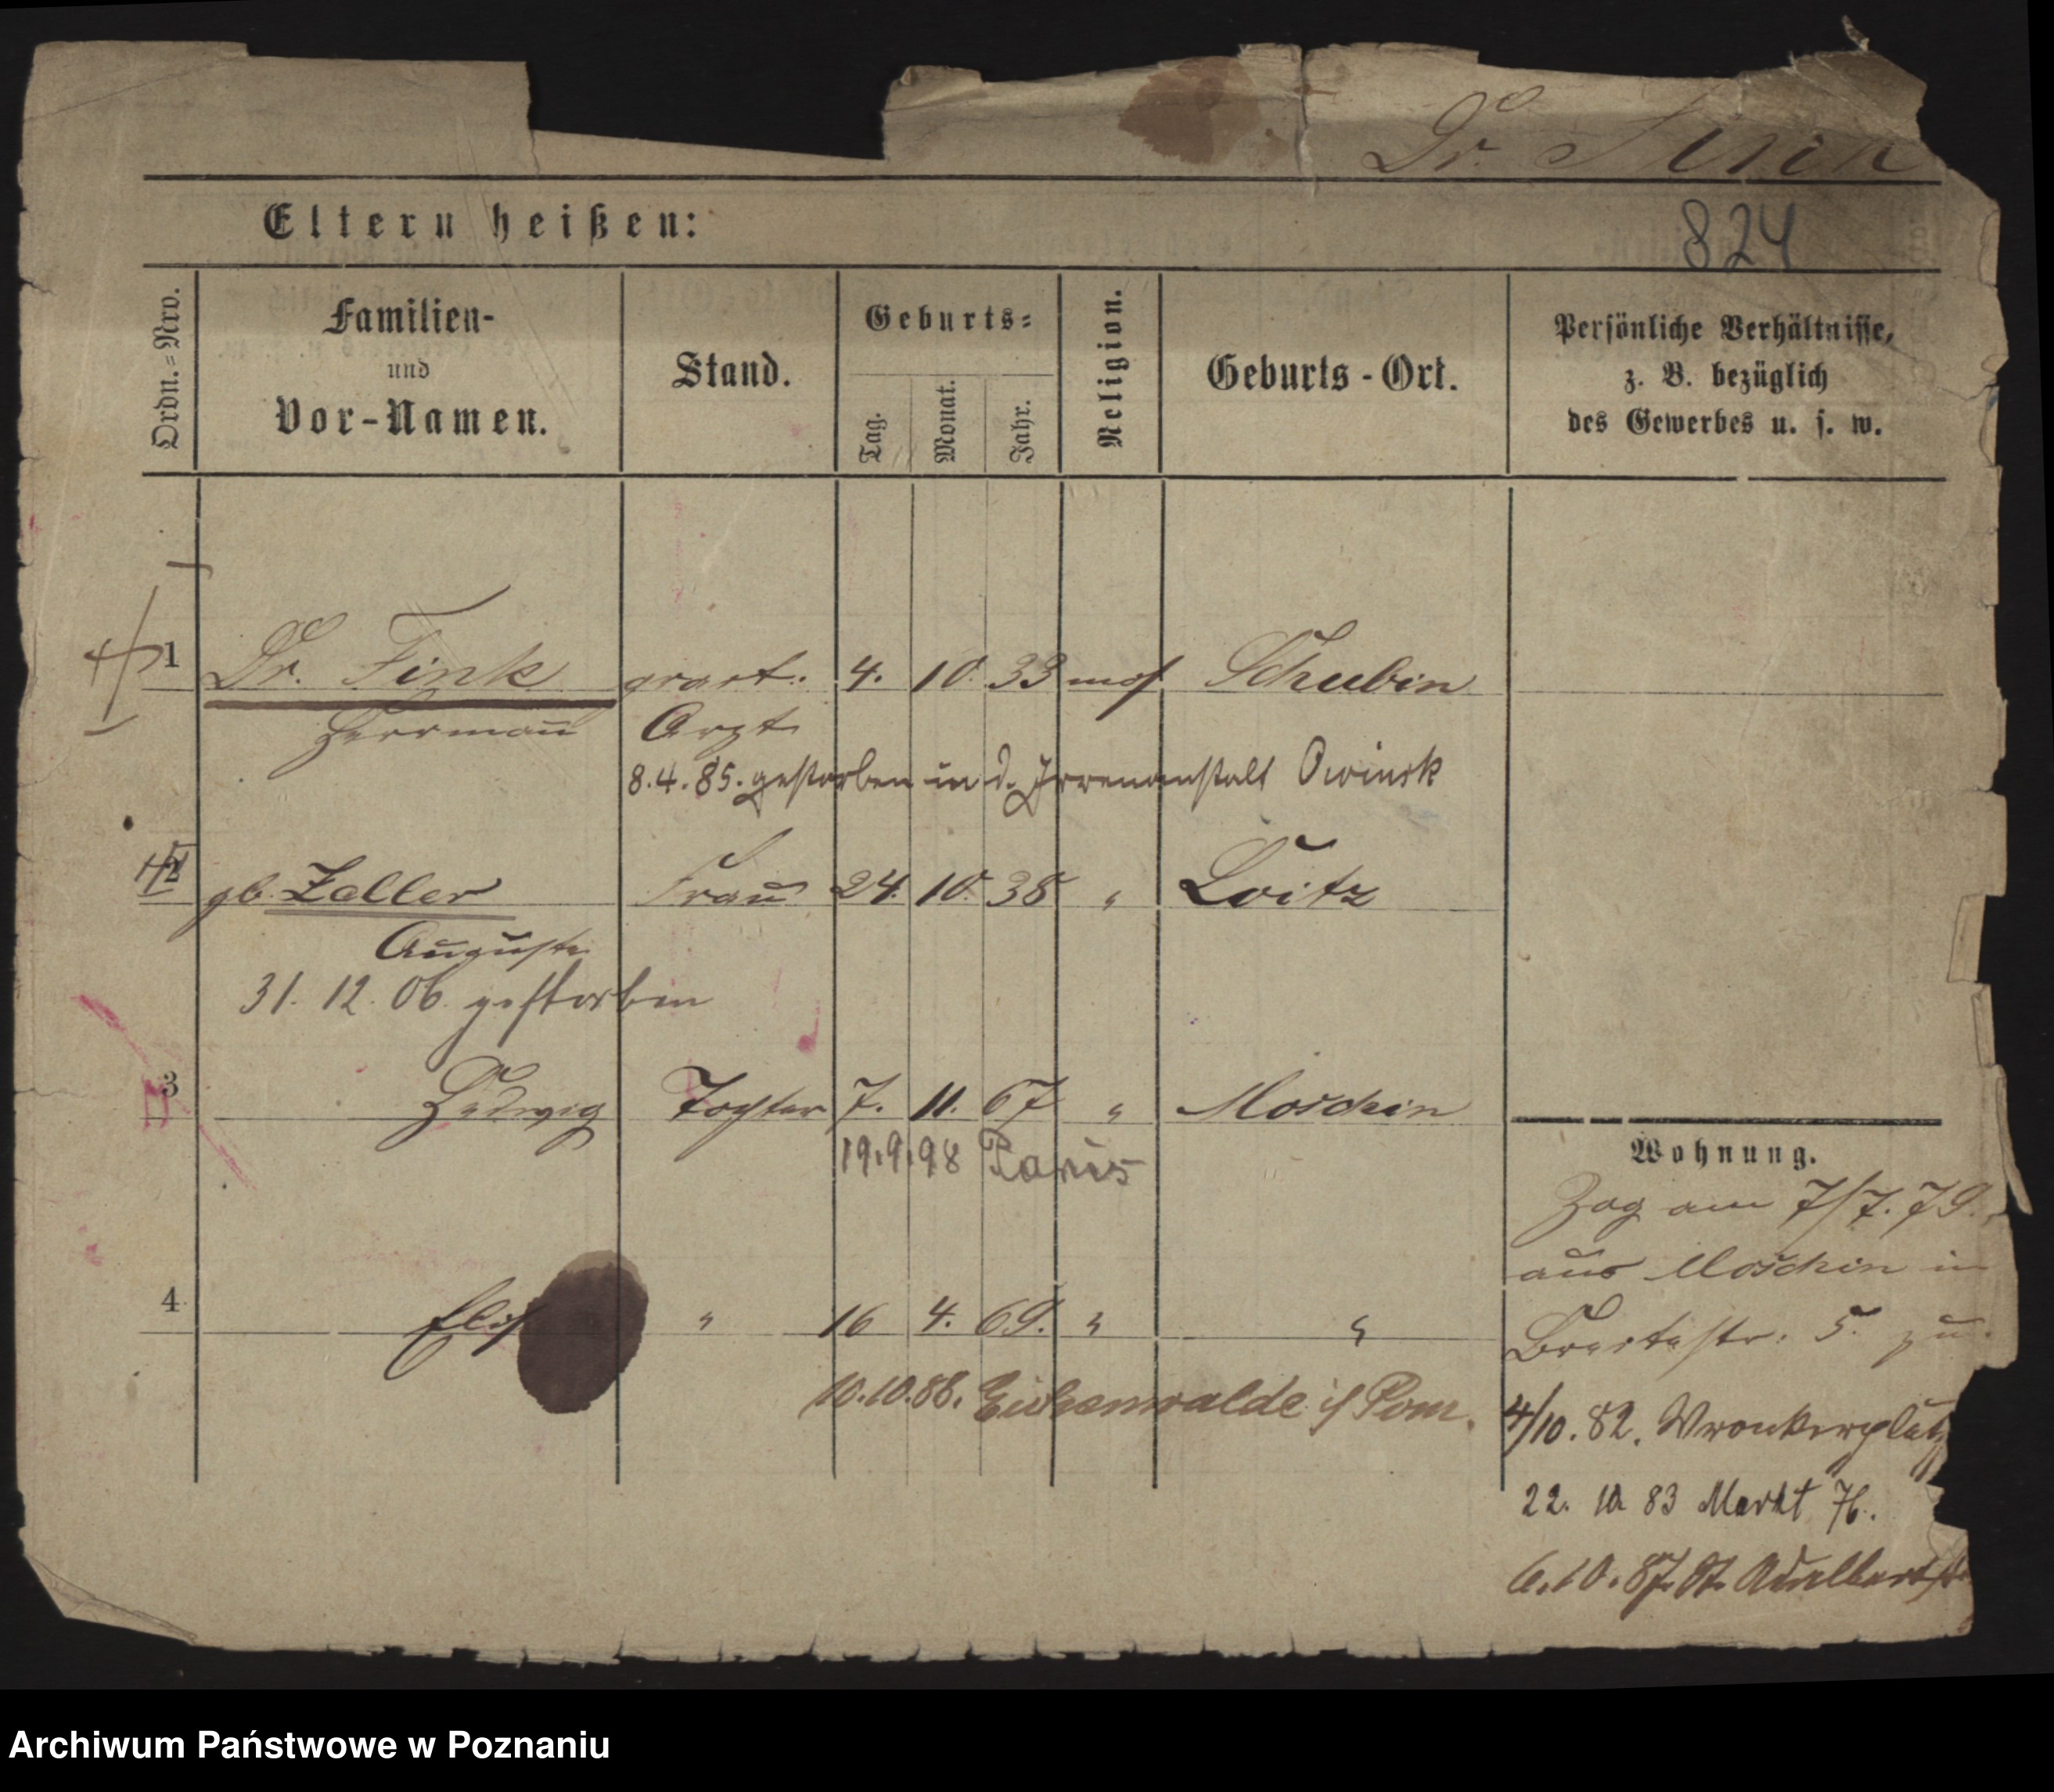 Dr.
Eltern heißen:
824
Ordn.=Nro.
Familien-
und
Vor-Namen.
Stand.
Geburts=
Tag.
Monat.
Jahr.
Religion.
Geburts-Ort.
Persönliche Verhältnisse,
z. B. bezüglich
des Gewerbes u. s. w.
1 Dr. Fink prart. 4. 10. 33 mos Schubin
Herrmann Arzt
8.4.85. gestorben in d. Irrenanstalt Owinsk
2 gb. Zeller Frau 24. 10. 38 " Loitz
Auguste
31. 12. 06. gestorben
3 Hedwig Tochter 7. 11. 67 " Moschin
19.9.98 Paris
4 " 16 4. 69. " "
10.10.88. Eichenwalde i/ Pom.
Wohnung.
Zog am 7/7. 79.
aus Moschin in
Breitestr: 5. zu.
4/10. 82. Wronkerplatz
22. 10 83 Markt 76.
6.10.87. St. Adalbertstr
Archiwum Państwowe w Poznaniu